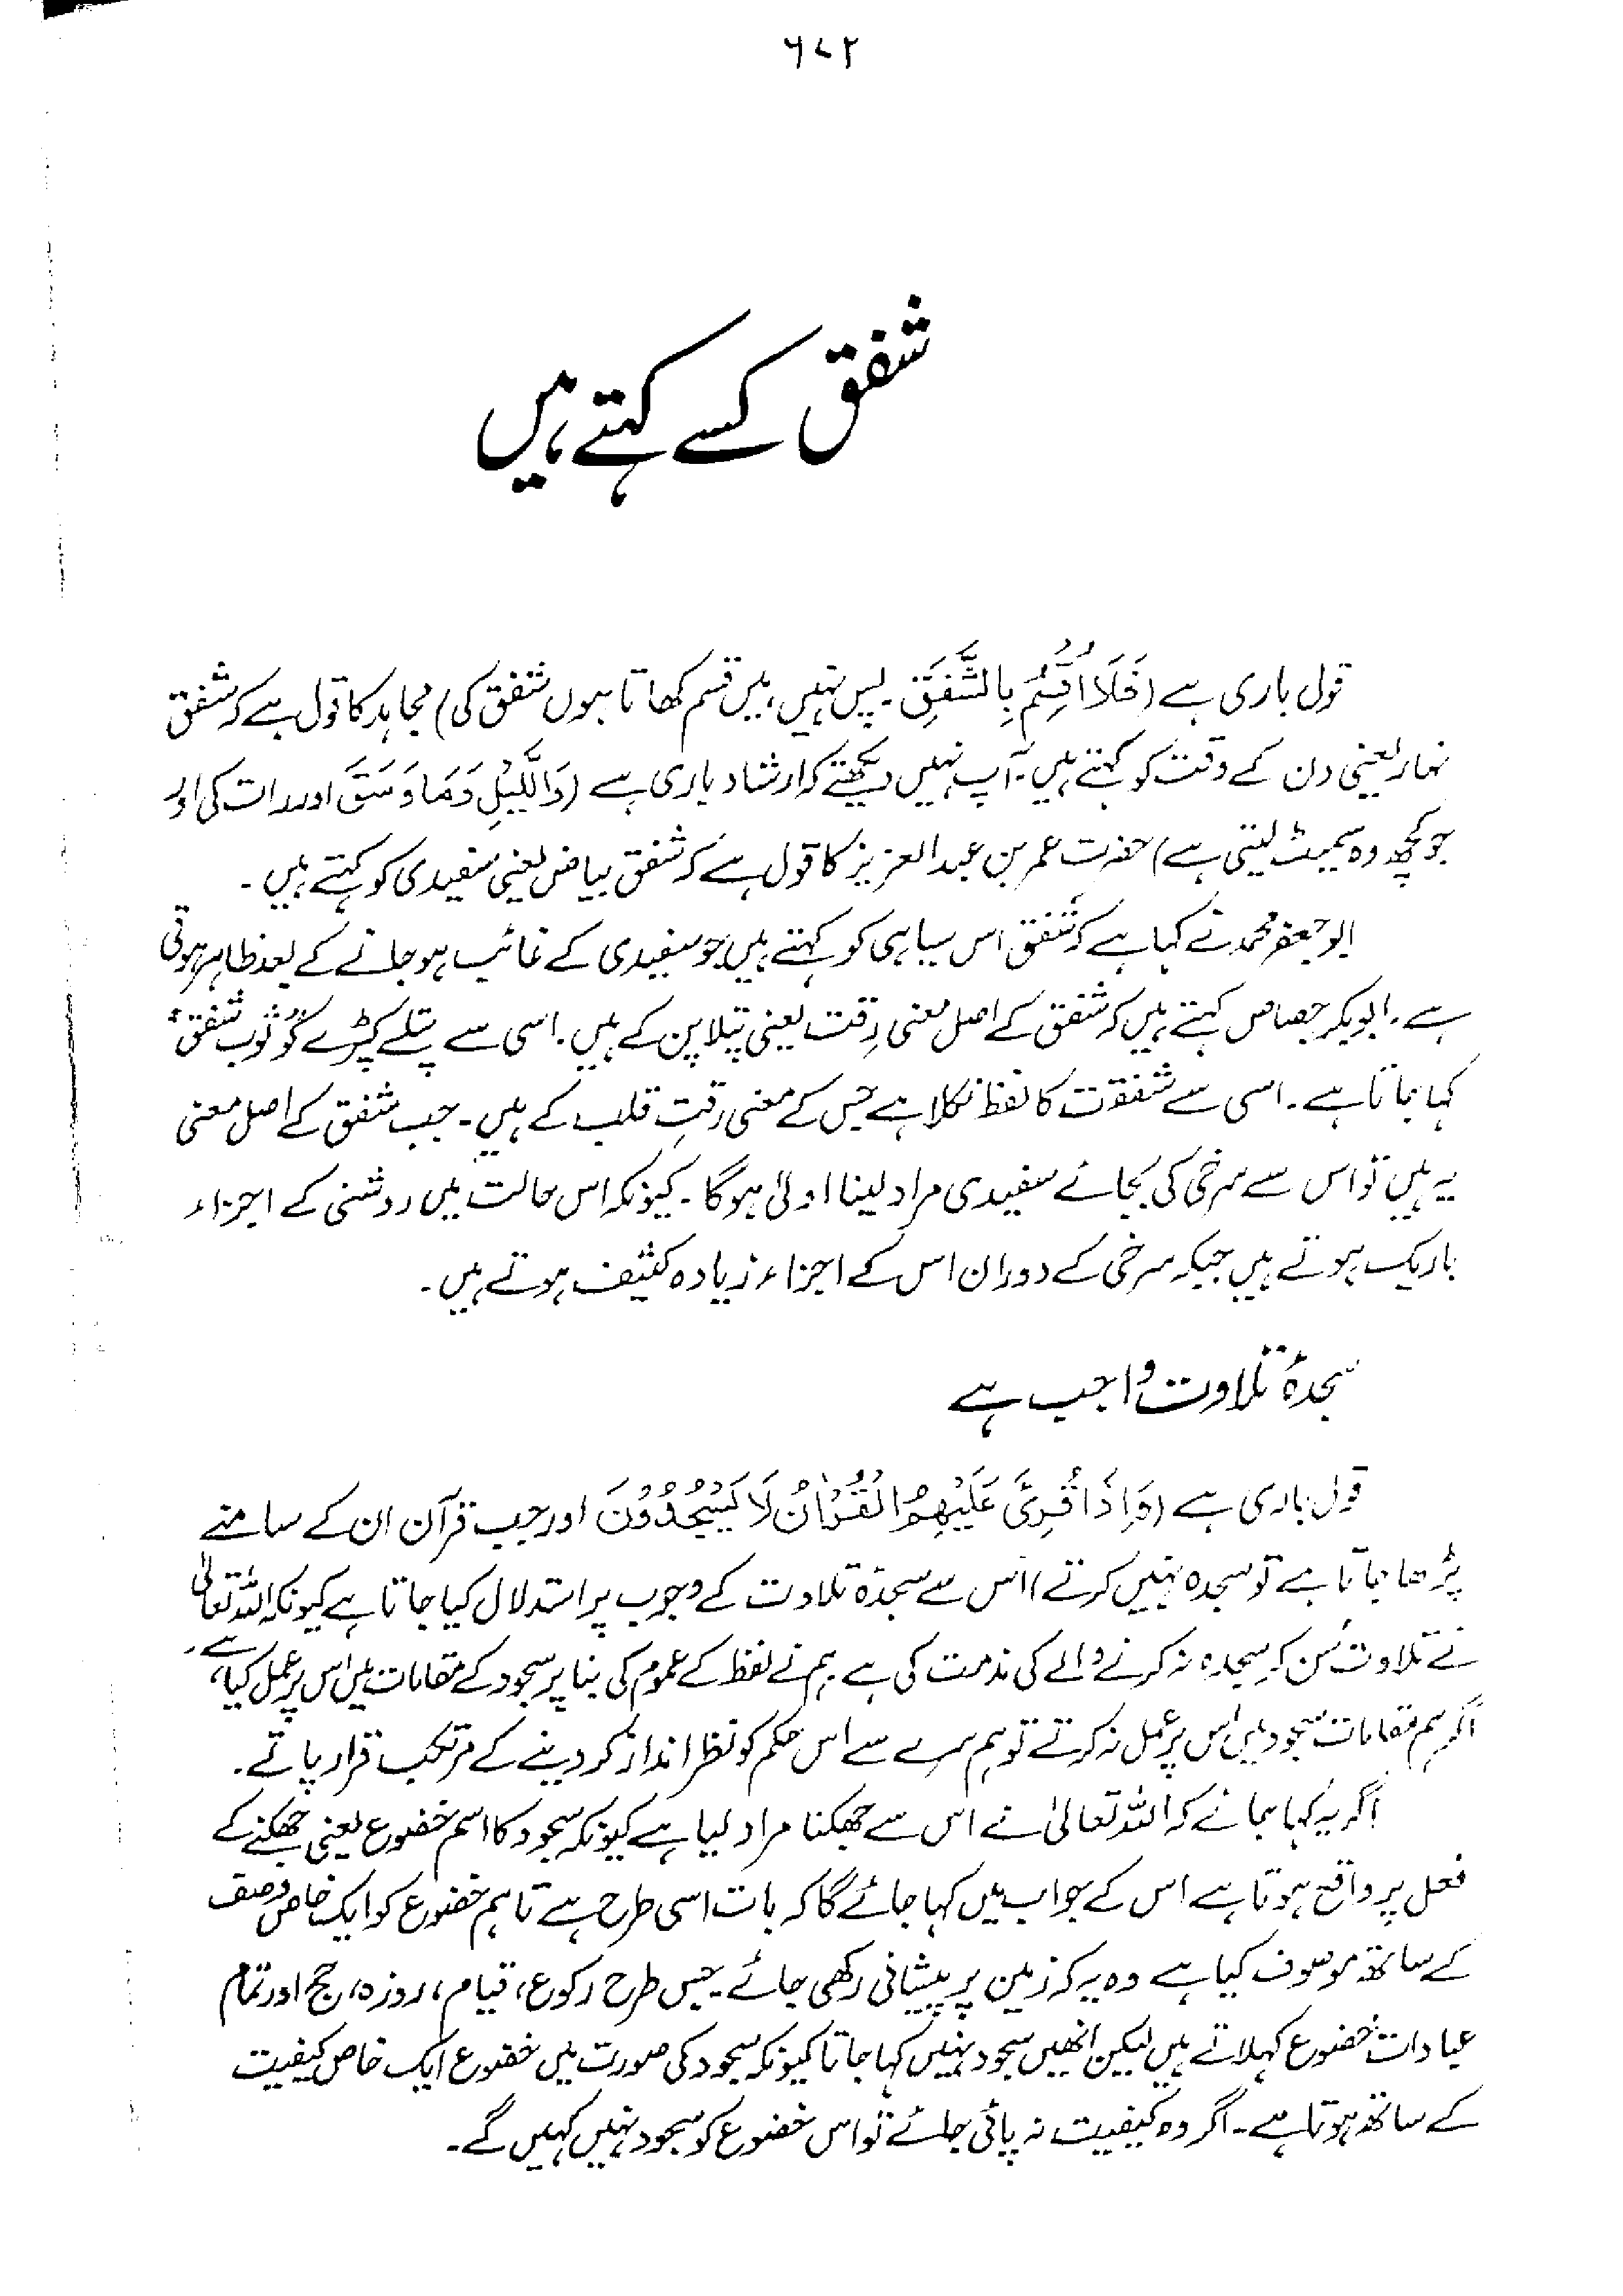 ۶۷۲
شفق کسے کہتے ہیں
قول باری ہے (فَلَا اُقْسِمُ بِالشَّفَقِ۔ پس نہیں، میں قسم کھاتا ہوں شفق کی) مجاہد کا قول ہے کہ شفق
نہار یعنی دن کے وقت کو کہتے ہیں۔ آپ نہیں دیکھتے کہ ارشاد باری ہے (وَالَّيْلِ وَمَا وَسَقَ اور رات کی اور
جو کچھ وہ سمیٹ لیتی ہے) حضرت عمر بن عبدالعزیز کا قول ہے کہ شفق بیاض یعنی سفیدی کو کہتے ہیں۔
ابو جعفر محمد نے کہا ہے کہ شفق اس سیاہی کو کہتے ہیں جو سفیدی کے غائب ہو جانے کے بعد ظاہر ہوتی
ہے۔ ابوبکر جصاص کہتے ہیں کہ شفق کے اصل معنی رِقت یعنی پتلا پن کے ہیں۔ اسی سے پتلے کپڑے کو ثوبٌ شفقٌ
کہا جاتا ہے۔ اسی سے شفقت کا لفظ نکلا ہے جس کے معنی رقتِ قلب کے ہیں۔ جب شفق کے اصل معنی
یہ ہیں تو اس سے سرخی کی بجائے سفیدی مراد لینا اولیٰ ہوگا۔ کیونکہ اس حالت میں روشنی کے اجزاء
باریک ہوتے ہیں جبکہ سرخی کے دوران اس کے اجزاء زیادہ کثیف ہوتے ہیں۔
سجدۂ تلاوت واجب ہے
قول باری ہے (وَاِذَا قُرِئَ عَلَيْهِمُ الْقُرْاٰنُ لَا يَسْجُدُوْنَ اور جب قرآن ان کے سامنے
پڑھا جاتا ہے تو سجدہ نہیں کرتے) اس سے سجدۂ تلاوت کے وجوب پر استدلال کیا جاتا ہے کیونکہ اللہ تعالیٰ
نے تلاوت سُن کر سجدہ نہ کرنے والے کی مذمت کی ہے ہم نے لفظ کے عموم کی بنا پر سجود کے مقامات میں اس پر عمل کیا ہے،
اگر ہم مقامات سجود میں اس پر عمل نہ کرتے تو ہم سرے سے اس حکم کو نظر انداز کر دینے کے مرتکب قرار پاتے۔
اگر یہ کہا جائے کہ اللہ تعالیٰ نے اس سے جھکنا مراد لیا ہے کیونکہ سجود کا اسم خضوع یعنی جھکنے کے
فعل پر واقع ہوتا ہے اس کے جواب میں کہا جائے گا کہ بات اسی طرح ہے تاہم خضوع کو ایک خاص وصف
کے ساتھ موصوف کیا ہے وہ یہ کہ زمین پر پیشانی رکھی جائے۔ جس طرح رکوع، قیام، روزہ، حج اور تمام
عبادات خضوع کہلاتے ہیں لیکن انھیں سجود نہیں کہا جاتا کیونکہ سجود کی صورت میں خضوع ایک خاص کیفیت
کے ساتھ ہوتا ہے۔ اگر وہ کیفیت نہ پائی جائے تو اس خضوع کو سجود نہیں کہیں گے۔